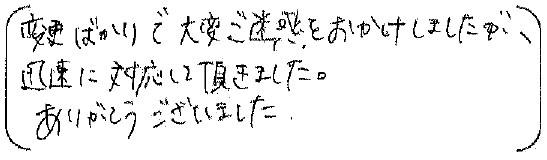 変更ばかりで大変ご迷惑をおかけしましたが、
迅速に対応して頂きました。
ありがとうございました.